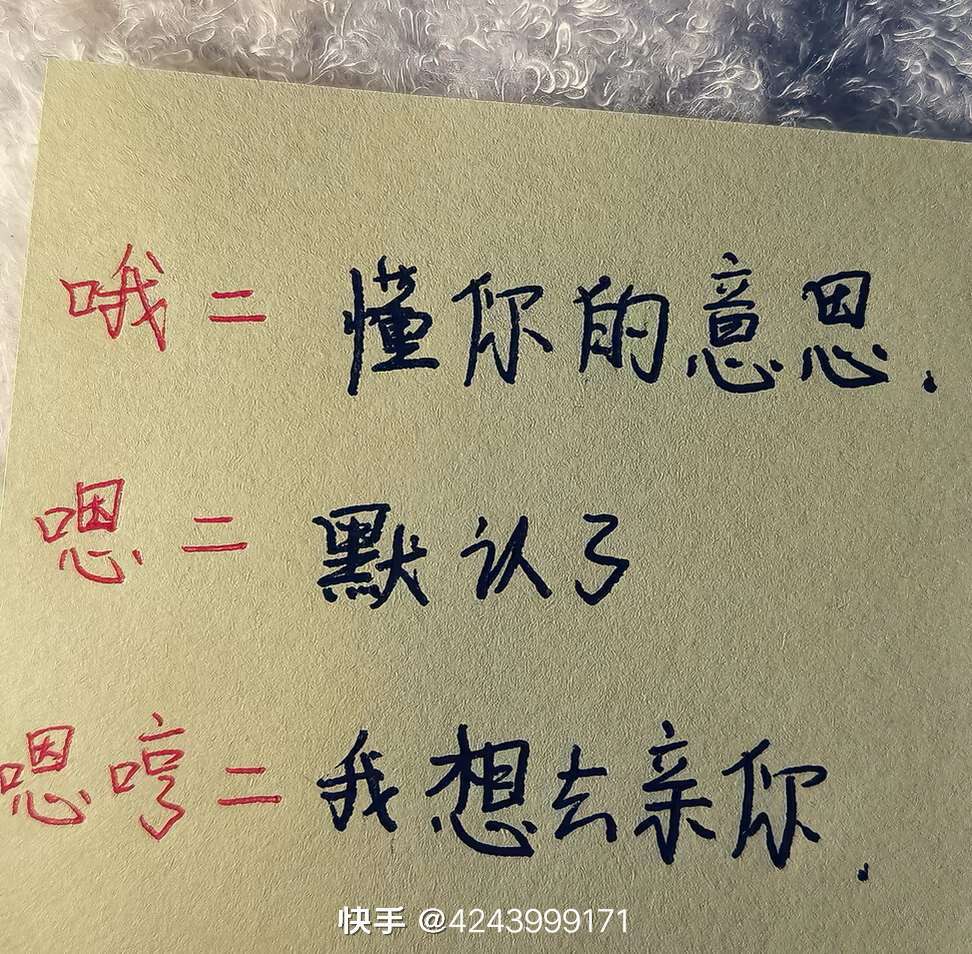 哦=懂你的意思.
嗯=默认了
嗯哼=我想去亲你.
快手 @4243999171